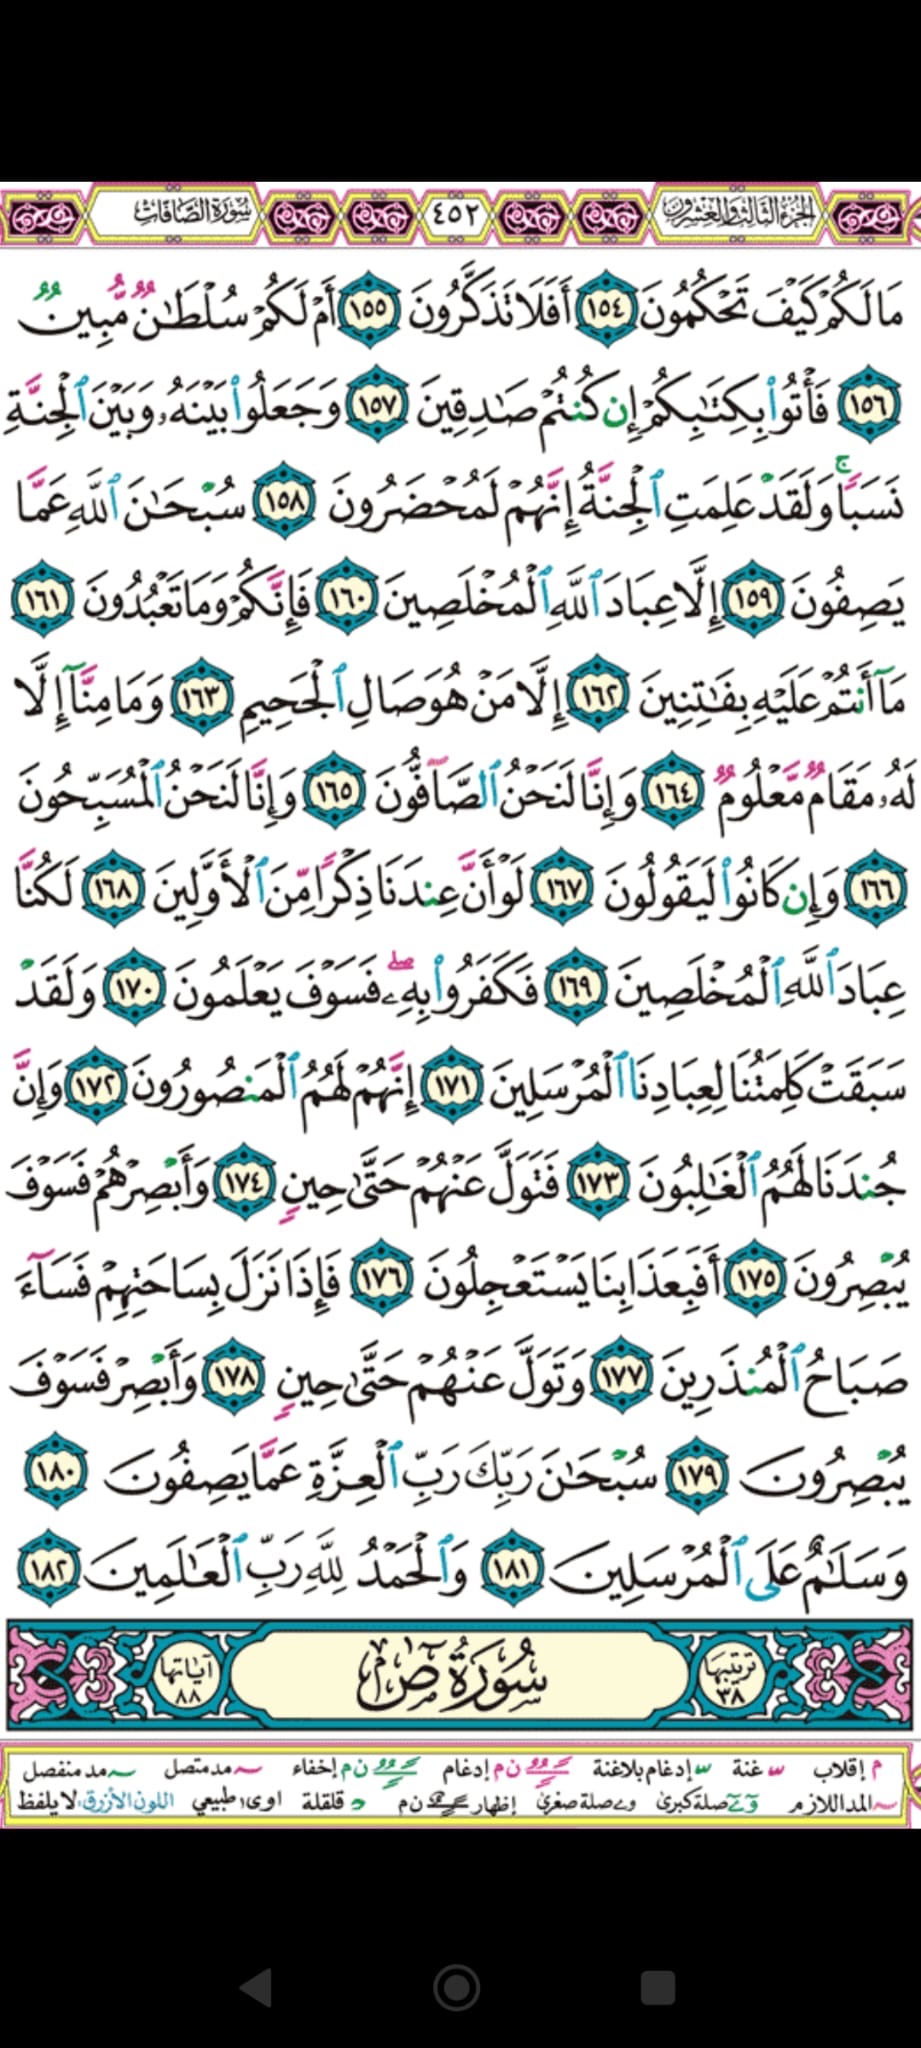 الجزء الثالث والعشرون ٤٥٢ سورة الصافات
مَا لَكُمْ كَيْفَ تَحْكُمُونَ ١٥٤ أَفَلَا تَذَكَّرُونَ ١٥٥ أَمْ لَكُمْ سُلْطَٰنٌ مُّبِينٌ
١٥٦ فَأْتُوا۟ بِكِتَٰبِكُمْ إِن كُنتُمْ صَٰدِقِينَ ١٥٧ وَجَعَلُوا۟ بَيْنَهُۥ وَبَيْنَ ٱلْجِنَّةِ
نَسَبًا ۚ وَلَقَدْ عَلِمَتِ ٱلْجِنَّةُ إِنَّهُمْ لَمُحْضَرُونَ ١٥٨ سُبْحَٰنَ ٱللَّهِ عَمَّا
يَصِفُونَ ١٥٩ إِلَّا عِبَادَ ٱللَّهِ ٱلْمُخْلَصِينَ ١٦٠ فَإِنَّكُمْ وَمَا تَعْبُدُونَ ١٦١
مَآ أَنتُمْ عَلَيْهِ بِفَٰتِنِينَ ١٦٢ إِلَّا مَنْ هُوَ صَالِ ٱلْجَحِيمِ ١٦٣ وَمَا مِنَّآ إِلَّا
لَهُۥ مَقَامٌ مَّعْلُومٌ ١٦٤ وَإِنَّا لَنَحْنُ ٱلصَّآفُّونَ ١٦٥ وَإِنَّا لَنَحْنُ ٱلْمُسَبِّحُونَ
١٦٦ وَإِن كَانُوا۟ لَيَقُولُونَ ١٦٧ لَوْ أَنَّ عِندَنَا ذِكْرًا مِّنَ ٱلْأَوَّلِينَ ١٦٨ لَكُنَّا
عِبَادَ ٱللَّهِ ٱلْمُخْلَصِينَ ١٦٩ فَكَفَرُوا۟ بِهِۦ ۖ فَسَوْفَ يَعْلَمُونَ ١٧٠ وَلَقَدْ
سَبَقَتْ كَلِمَتُنَا لِعِبَادِنَا ٱلْمُرْسَلِينَ ١٧١ إِنَّهُمْ لَهُمُ ٱلْمَنصُورُونَ ١٧٢ وَإِنَّ
جُندَنَا لَهُمُ ٱلْغَٰلِبُونَ ١٧٣ فَتَوَلَّ عَنْهُمْ حَتَّىٰ حِينٍ ١٧٤ وَأَبْصِرْهُمْ فَسَوْفَ
يُبْصِرُونَ ١٧٥ أَفَبِعَذَابِنَا يَسْتَعْجِلُونَ ١٧٦ فَإِذَا نَزَلَ بِسَاحَتِهِمْ فَسَآءَ
صَبَاحُ ٱلْمُنذَرِينَ ١٧٧ وَتَوَلَّ عَنْهُمْ حَتَّىٰ حِينٍ ١٧٨ وَأَبْصِرْ فَسَوْفَ
يُبْصِرُونَ ١٧٩ سُبْحَٰنَ رَبِّكَ رَبِّ ٱلْعِزَّةِ عَمَّا يَصِفُونَ ١٨٠
وَسَلَٰمٌ عَلَى ٱلْمُرْسَلِينَ ١٨١ وَٱلْحَمْدُ لِلَّهِ رَبِّ ٱلْعَٰلَمِينَ ١٨٢
ترتيبها ٣٨ سُورَةُ صٓ آياتها ٨٨
م إقلاب غنة إدغام بلاغنة ن م إدغام ن م إخفاء مد متصل مد منفصل
المد اللازم صلة كبرى صلة صغرى إظهار ن م قلقلة اوى طبيعي اللون الأزرق: لا يلفظ